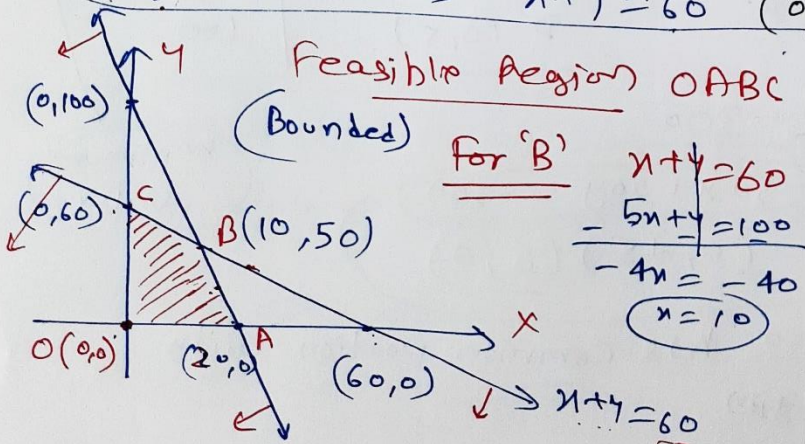 x+y=60 (0
y
Feasible Region OABC
(0,100)
(Bounded)
For 'B'
x+y=60
- 5x+y=100
- -
-4x = -40
x=10
C
(0,60)
B(10,50)
X
O(0,0)
A
(20,0)
(60,0)
x+y=60